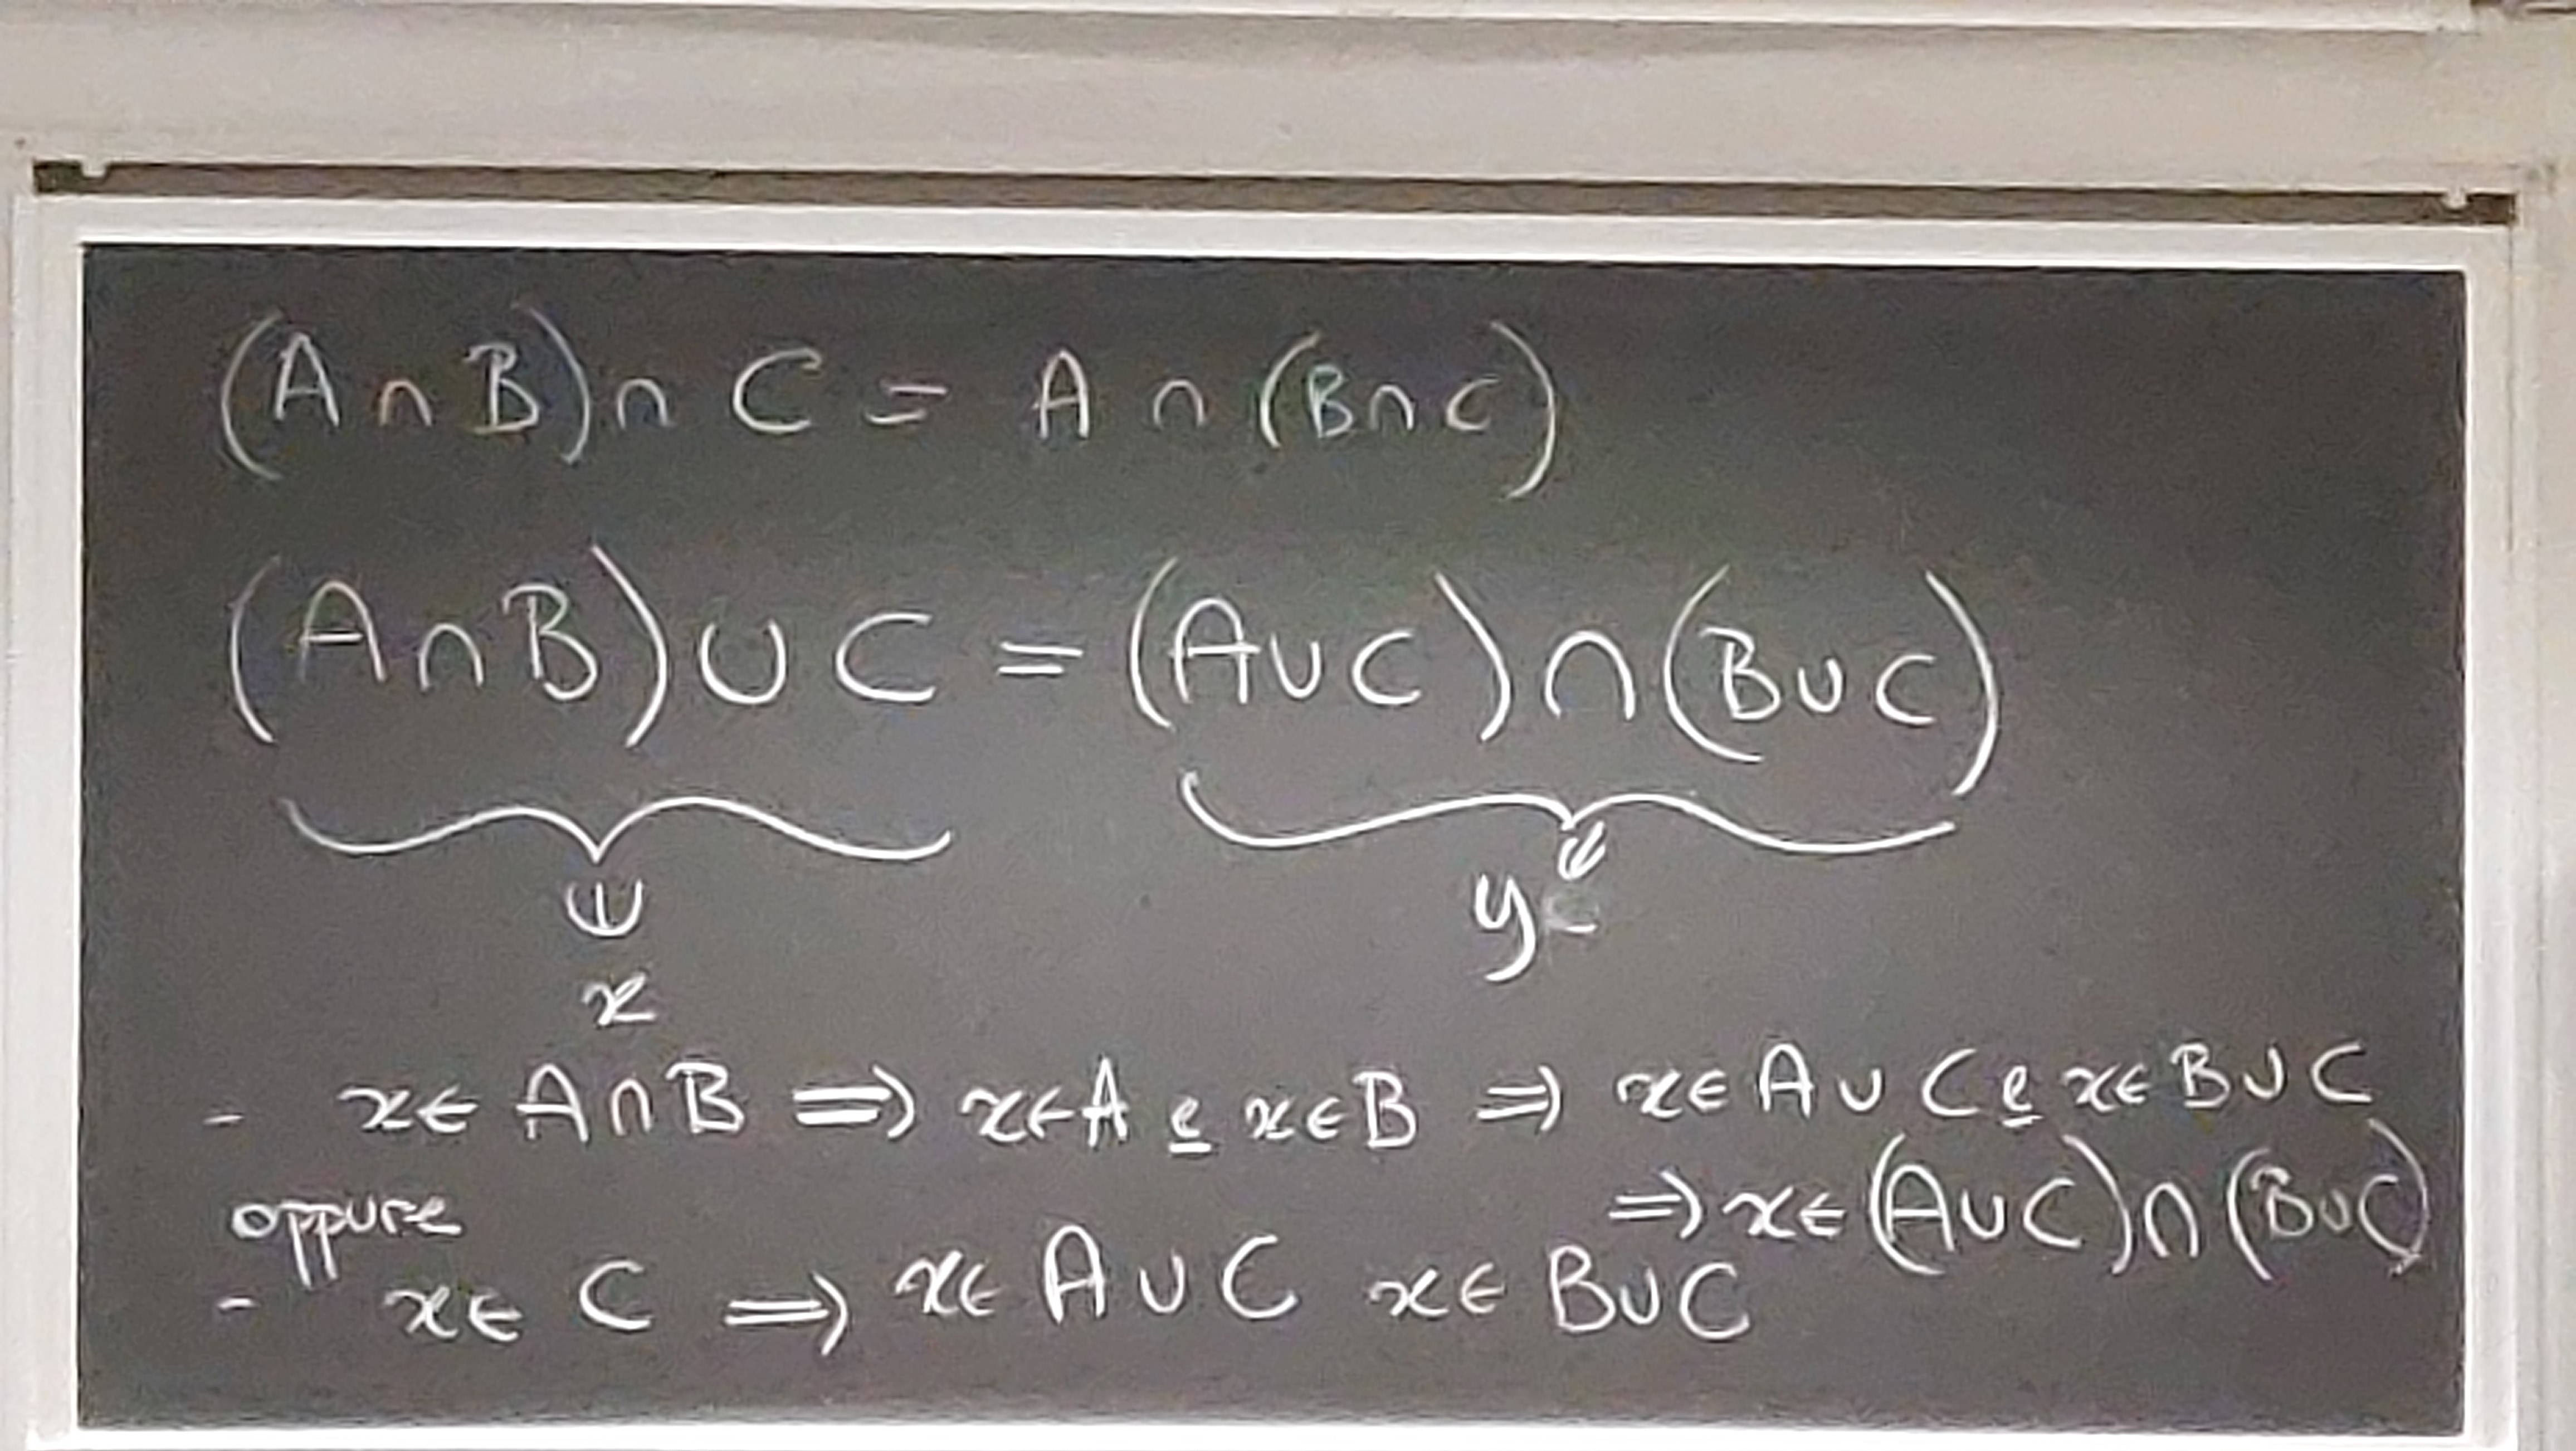 (A∩B)∩C = A∩(B∩C)
(A∩B)∪C = (A∪C)∩(B∪C)
x
y
- x∈A∩B ⟹ x∈A e x∈B ⟹ x∈A∪C e x∈B∪C
⟹ x∈(A∪C)∩(B∪C)
oppure
- x∈C ⟹ x∈A∪C x∈B∪C